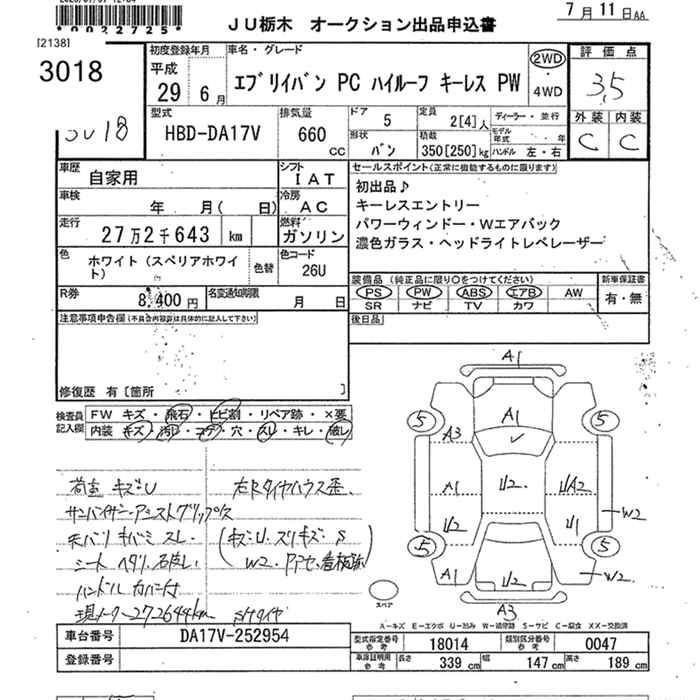 *0022725*
JU栃木 オークション出品申込書
7月11日AA
[2138]
3018
初度登録年月
平成
29 6月
車名・グレード
エブリイバン PC ハイルーフ キーレス PW
2WD
・
4WD
評価点
3.5
外装 内装
C C
型式
HBD-DA17V
排気量
660
cc
ドア
5
形状
バン
定員
2[4]人
積載
350[250]kg
ディーラー・並行
モデル年式 ・ 年
ハンドル 左・右
車歴
自家用
シフト
IAT
車検
年 月( 日)
冷房
AC
走行
27万2千643 km
燃料
ガソリン
色
ホワイト(スペリアホワイト)
色替
色コード
26U
R券
8,400円
名変通知期限
月 日
セールスポイント(正常に機能するものに限ります)
初出品♪
キーレスエントリー
パワーウィンドー・Wエアバック
濃色ガラス・ヘッドライトレベレーザー
装備品 (純正品に限り○をつけてください)
PS PW ABS エアB AW
SR ナビ TV カワ
新車保証書
有・無
後日品
注意事項申告欄(不具合内容等は具体的に記入して下さい)
修復歴 有〔箇所 〕
検査員記入欄
FW キズ・飛石・ヒビ割・リペア跡・×要
内装 キズ・汚レ・コゲ・穴・スレ・キレ・破レ
荷室 キズ・U
サンバイザー・アシストグリップ欠
シート ヘタリ
ハンドル カバー付
現メーター272644km
右Rタイヤハウス歪
キズ・U
W2
A1
A1
A3
5
5
A1
U2
UA2
U2
U1
W2
5
5
A1
U2
W2
A3
スペア
A-キズ E-エクボ U-凹み W-補修跡 S-サビ C-腐食 XX-交換済
車台番号
DA17V-252954
登録番号
型式指定番号 参考
18014
類別区分番号 参考
0047
車庫証明用 参考
長さ 339 cm 幅 147 cm 高さ 189 cm